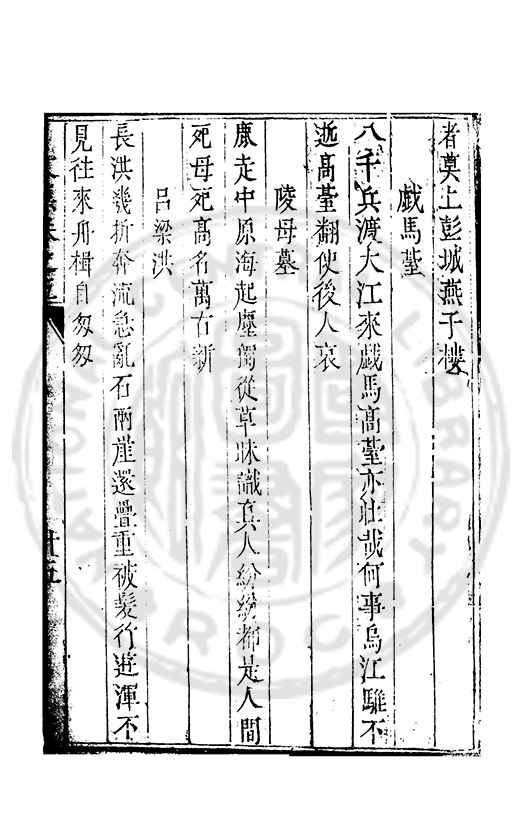 者莫上彭城燕子樓
戲馬臺
八千兵渡大江來戲馬高臺亦壯哉何事烏江騅不
逝高臺翻使後人哀
陵母墓
鹿走中原海起塵獨從草昧識真人紛紛都是人間
死母死高名萬古新
呂梁洪
長洪幾折奔流急亂石兩崖還疊重被髮行遊渾不
見往來舟楫自匆匆